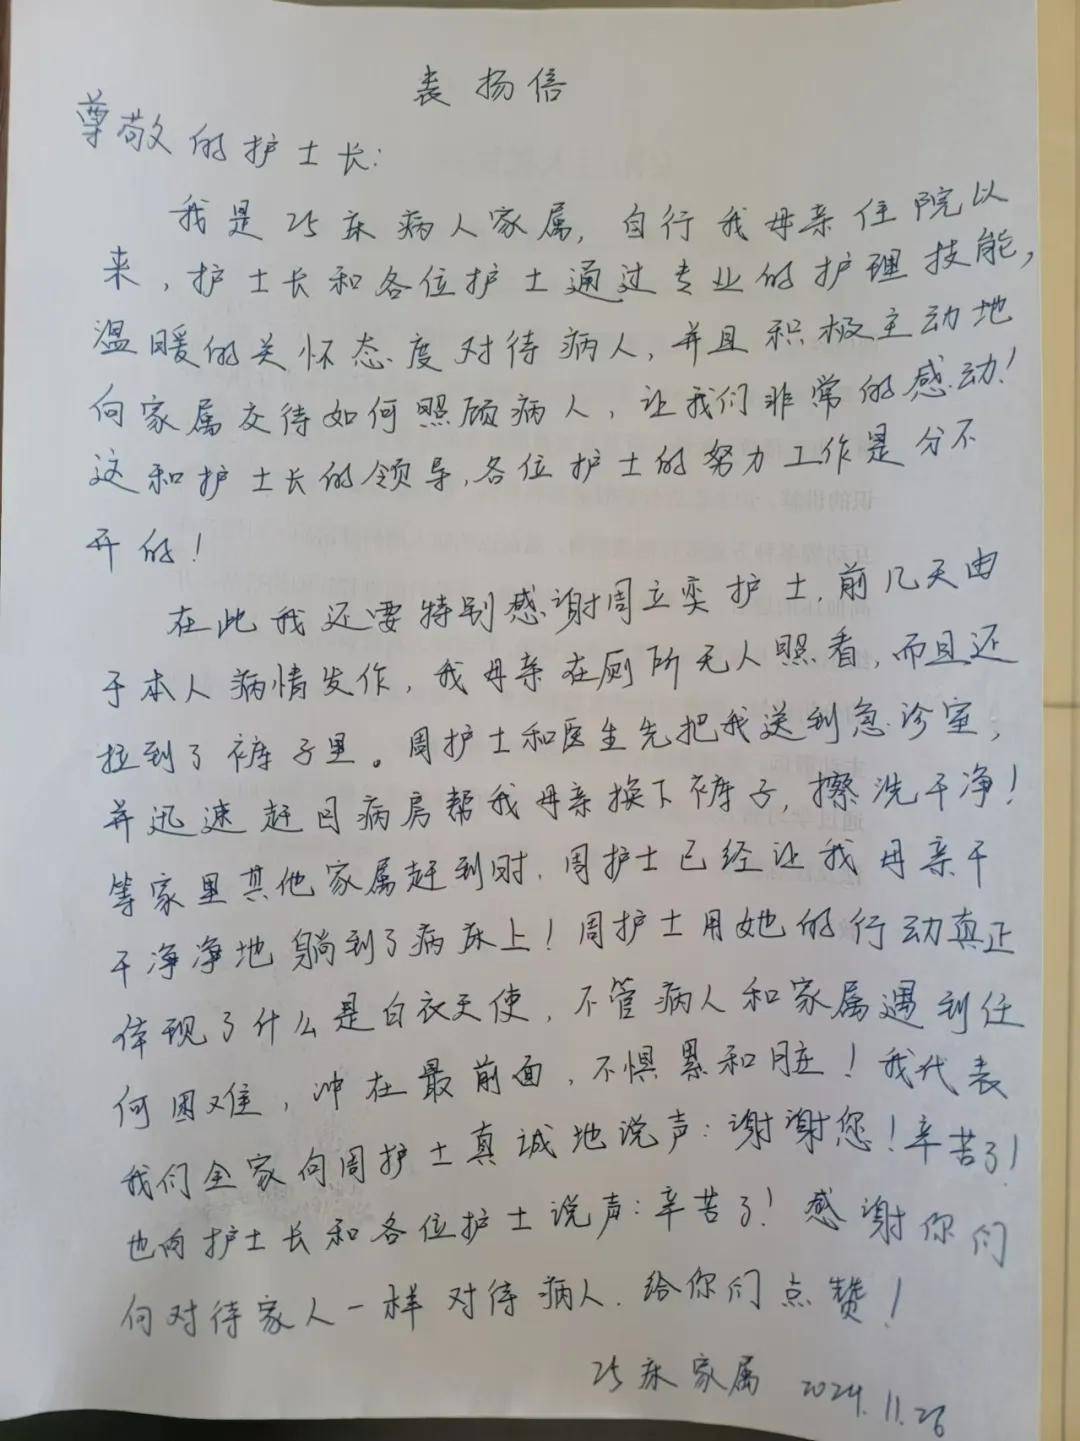 表扬信
尊敬的护士长:
我是25床病人家属,自行我母亲住院以
来,护士长和各位护士通过专业的护理技能,
温暖的关怀态度对待病人,并且积极主动地
向家属交待如何照顾病人,让我们非常的感动!
这和护士长的领导,各位护士的努力工作是分不
开的!
在此我还要特别感谢周立奕护士,前几天由
于本人病情发作,我母亲在厕所无人照看,而且还
拉到了裤子里。周护士和医生先把我送到急诊室,
并迅速赶回病房帮我母亲换下裤子,擦洗干净!
等家里其他家属赶到时,周护士已经让我母亲干
干净净地躺到了病床上!周护士用她的行动真正
体现了什么是白衣天使,不管病人和家属遇到任
何困难,冲在最前面,不惧累和脏!我代表
我们全家向周护士真诚地说声:谢谢您!辛苦了!
也向护士长和各位护士说声:辛苦了!感谢你们
向对待家人一样对待病人.给你们点赞!
25床家属 2024.11.26
识的讲解,